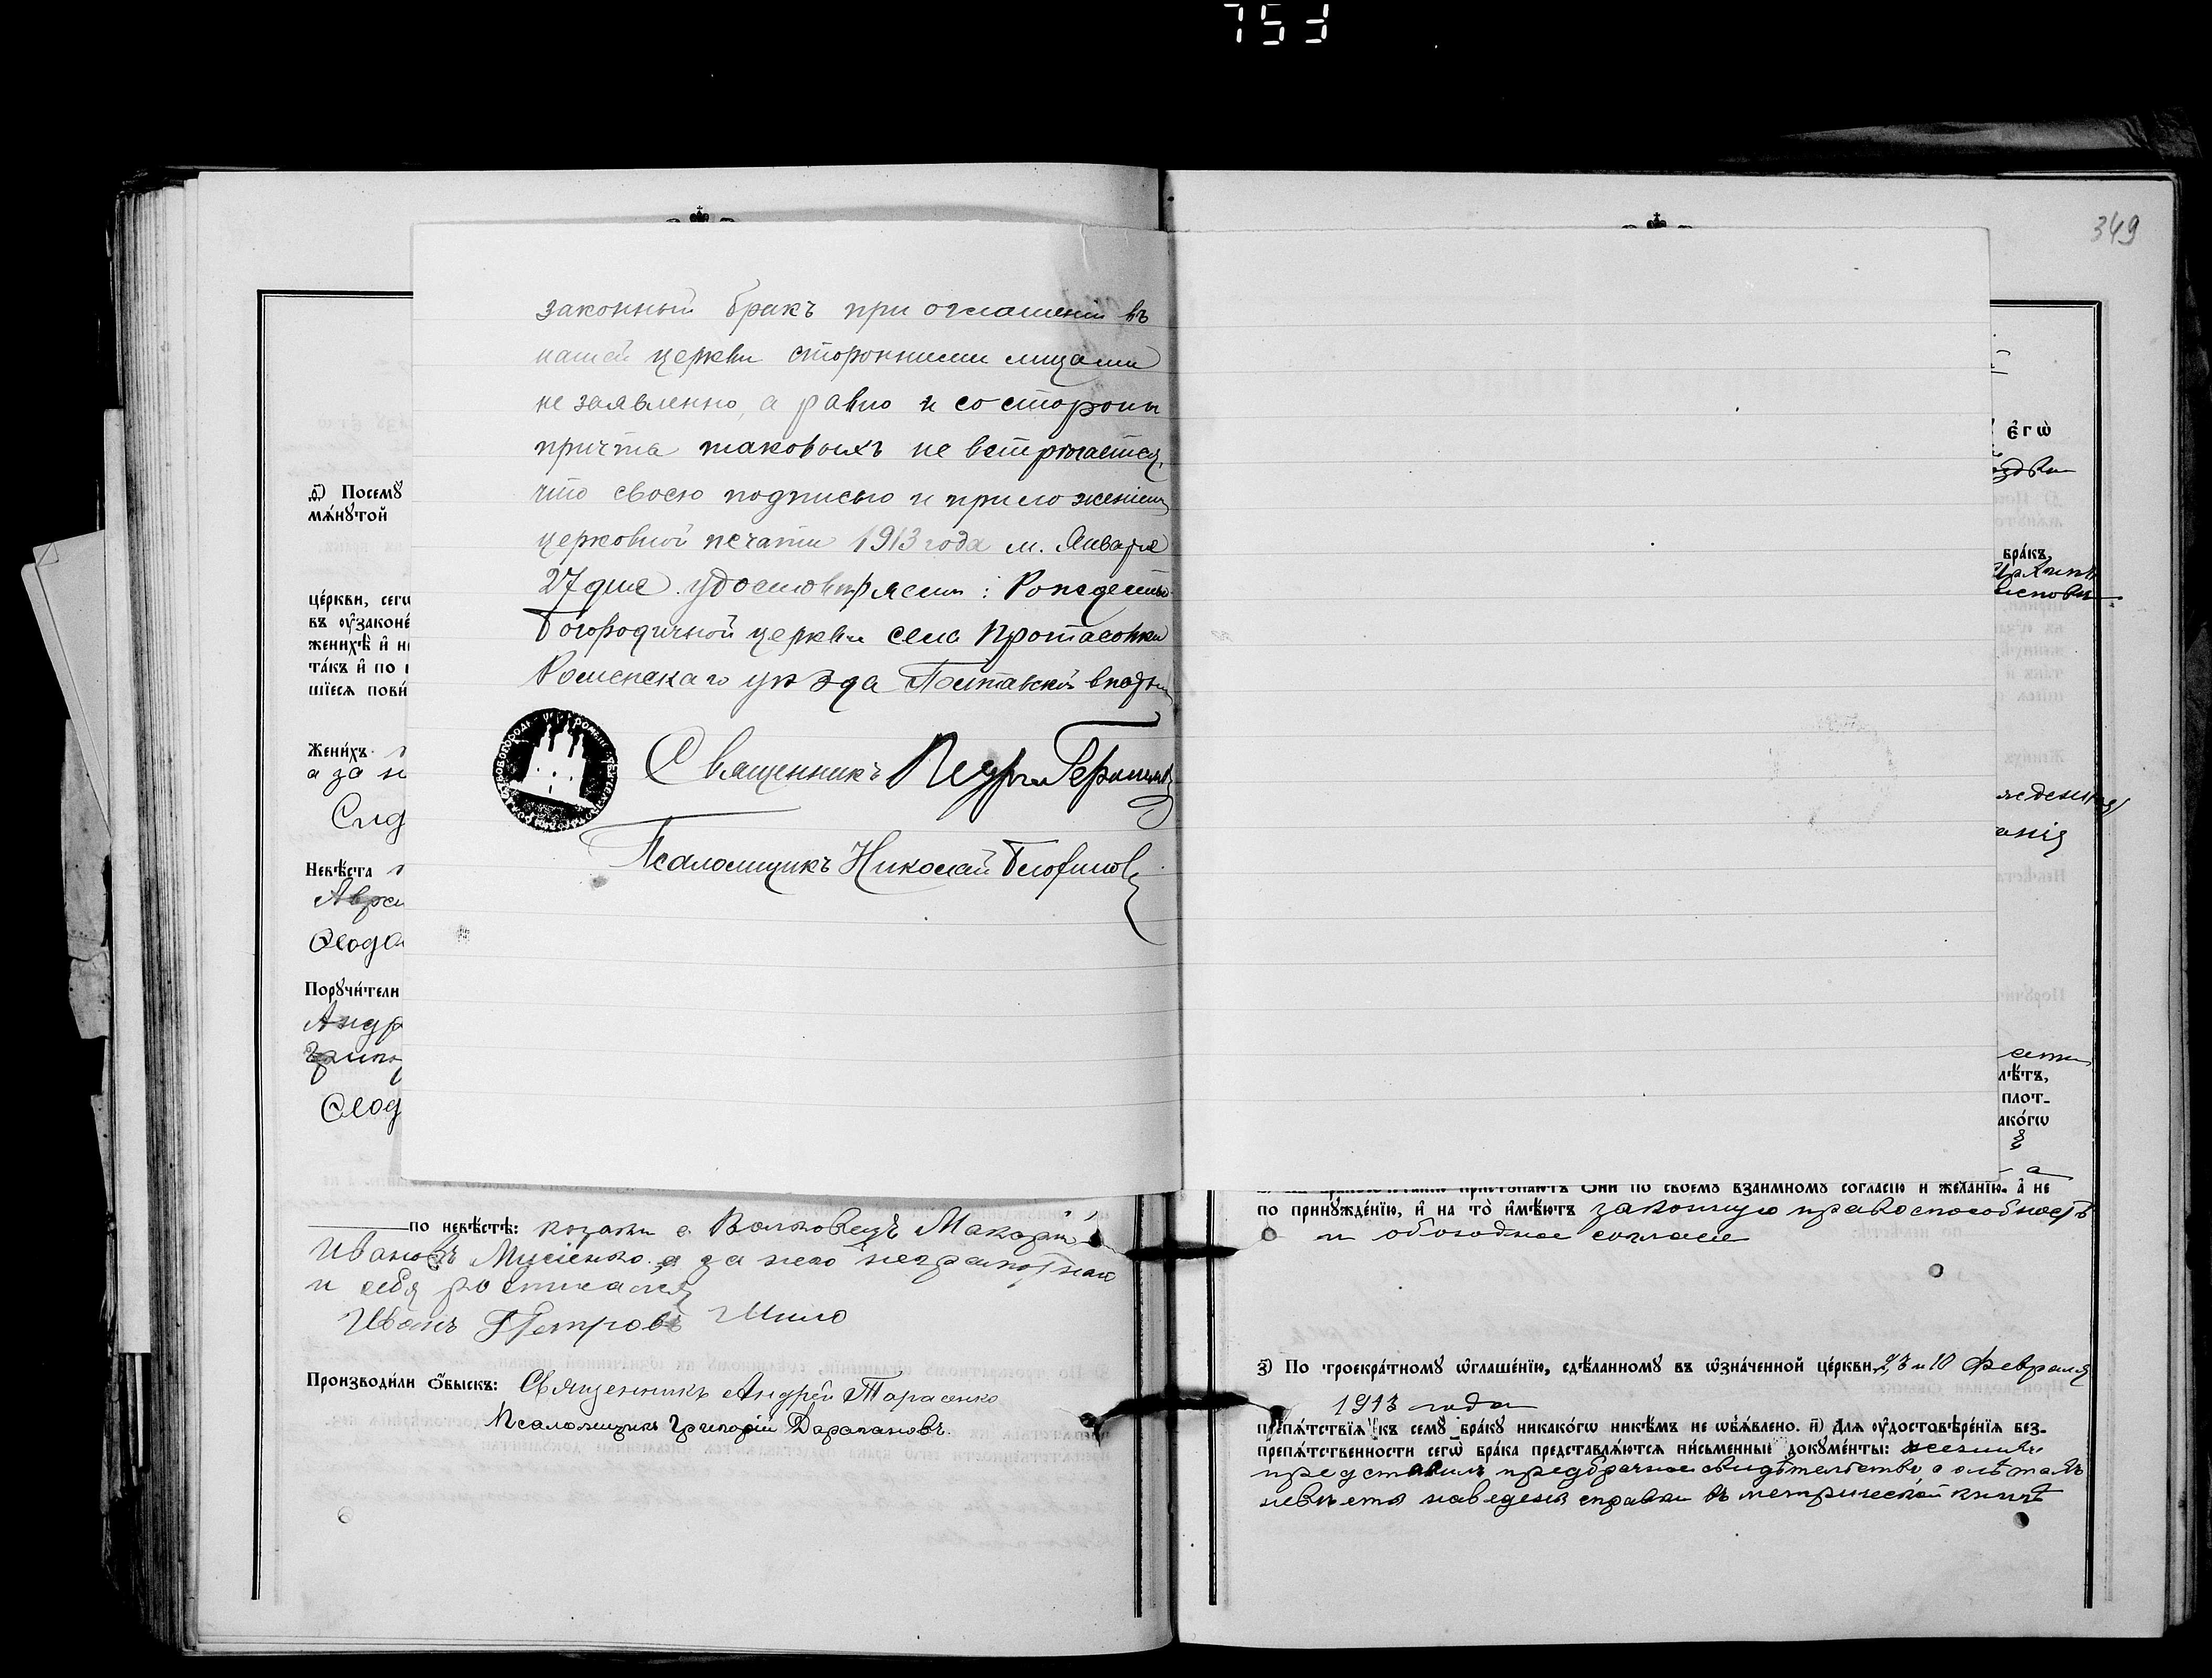 753
349
законный бракъ при оглашеніи въ
нашей церкви сторонними лицами
не заявленно, а равно и со стороны
причта таковыхъ не встрѣчается,
что своею подписью и приложеніемъ
церковной печати 1913 года м. Января
27 дня удостовѣряемъ: Рождество-
Богородичной церкви села Протасовки
Роменскаго уѣзда Полтавской епархіи
Священникъ
Псаломщикъ Николай
д҃) Посемꙋ
мѧ́нꙋтой
це́ркви, сегѡ
въ ᲂу҆законе́
женихѣ̀ и҆ н
та́къ и҆ по
шїесѧ пови́
Жени́хъ
а за н
Сид
Невѣ́ста
Авра
Ѳеодо
Порꙋчи́тели
Андр
Ѳеод
по невѣ́стѣ: козаки с. Волковецъ Макарій
Ивановъ Мусіенко а за него неграмотнаго
и себя росписался
Иванъ Петровъ Шило
Производи́ли ѻ҆́быскъ: Священникъ Андрей Тарасенко
Псаломщикъ Григорій Дарагановъ.
є҆гѡ̀
бра́къ,
лѣ́тъ,
плот-
ако́гѡ
приступаютъ ѻ҆ни по своемꙋ взаимномꙋ согласїю и желанїю, а҆ не
по принꙋжде́нїю, и҆ на то̀ и҆мѣ́ютъ законную правоспособность
и обоюдное согласіе
з҃) По троекра́тномꙋ ѡ҆глаше́нїю, сдѣ́ланномꙋ въ ѡ҆зна́ченной це́ркви, 2, 3 и 10 Февраля
1913 года
препѧ́тствїѧ къ семꙋ̀ бра́кꙋ никако́гѡ никѣ́мъ не ѡ҆б̾ѧ́влено. и҃) Длѧ ᲂу҆достовѣре́нїѧ без-
препѧ́тственности сегѡ̀ бра́ка представлѧ́ютсѧ пи́сьменные докꙋме́нты: женихъ
представилъ предбрачное свидѣтельство, о лѣтахъ
невѣсты наведена справка въ метрической книгѣ